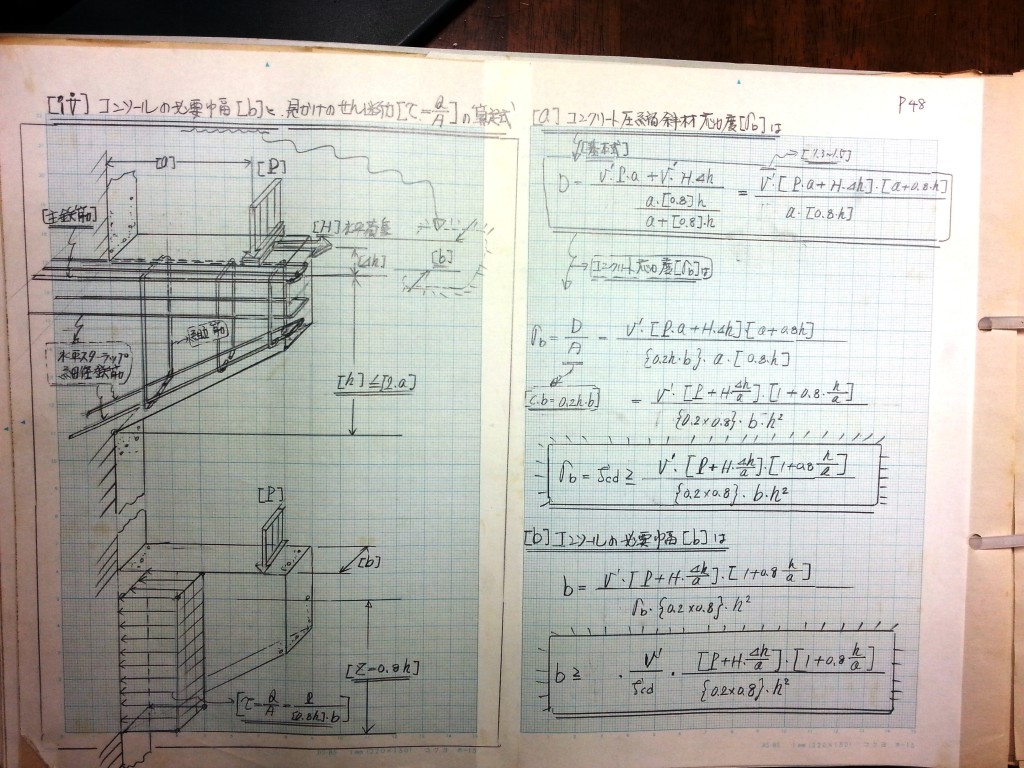 [iv] コンソールの必要巾幅[b]と、見かけのせん断応力[τ=Q/A]の算定式
[a]
[P]
[主鉄筋]
[H]水平荷重
[Δh]
[b]
縦筋
水平スターラップ
細径鉄筋
[h]≦[2.a]
[P]
[b]
[Z=0.8h]
[τ=Q/A=P/[0.8h].b]
P48
[a] コンクリート圧縮斜材応力度[σb]は
[基本式]
[1.3~1.5]
D = (ν'.P.a + ν'.H.Δh) / (a.[0.8].h / a+[0.8].h) = ν'.[P.a+H.Δh].[a+0.8.h] / a.[0.8.h]
[コンクリート応力度[σb]は]
σb = D/A = ν'.[P.a+H.Δh].[a+0.8h] / {0.2h.b}.a.[0.8.h]
[c.b=0.2h.b]
= ν'.[P+H.Δh/a].[1+0.8.h/a] / {0.2×0.8}.b.h²
σb = ζcd ≥ ν'.[P+H.Δh/a].[1+0.8 h/a] / {0.2×0.8}.b.h²
[b] コンソールの必要巾幅[b]は
b = ν'.[P+H.Δh/a].[1+0.8 h/a] / σb.{0.2×0.8}.h²
b ≥ . ν'/ζcd . [P+H.Δh/a].[1+0.8 h/a] / {0.2×0.8}.h²